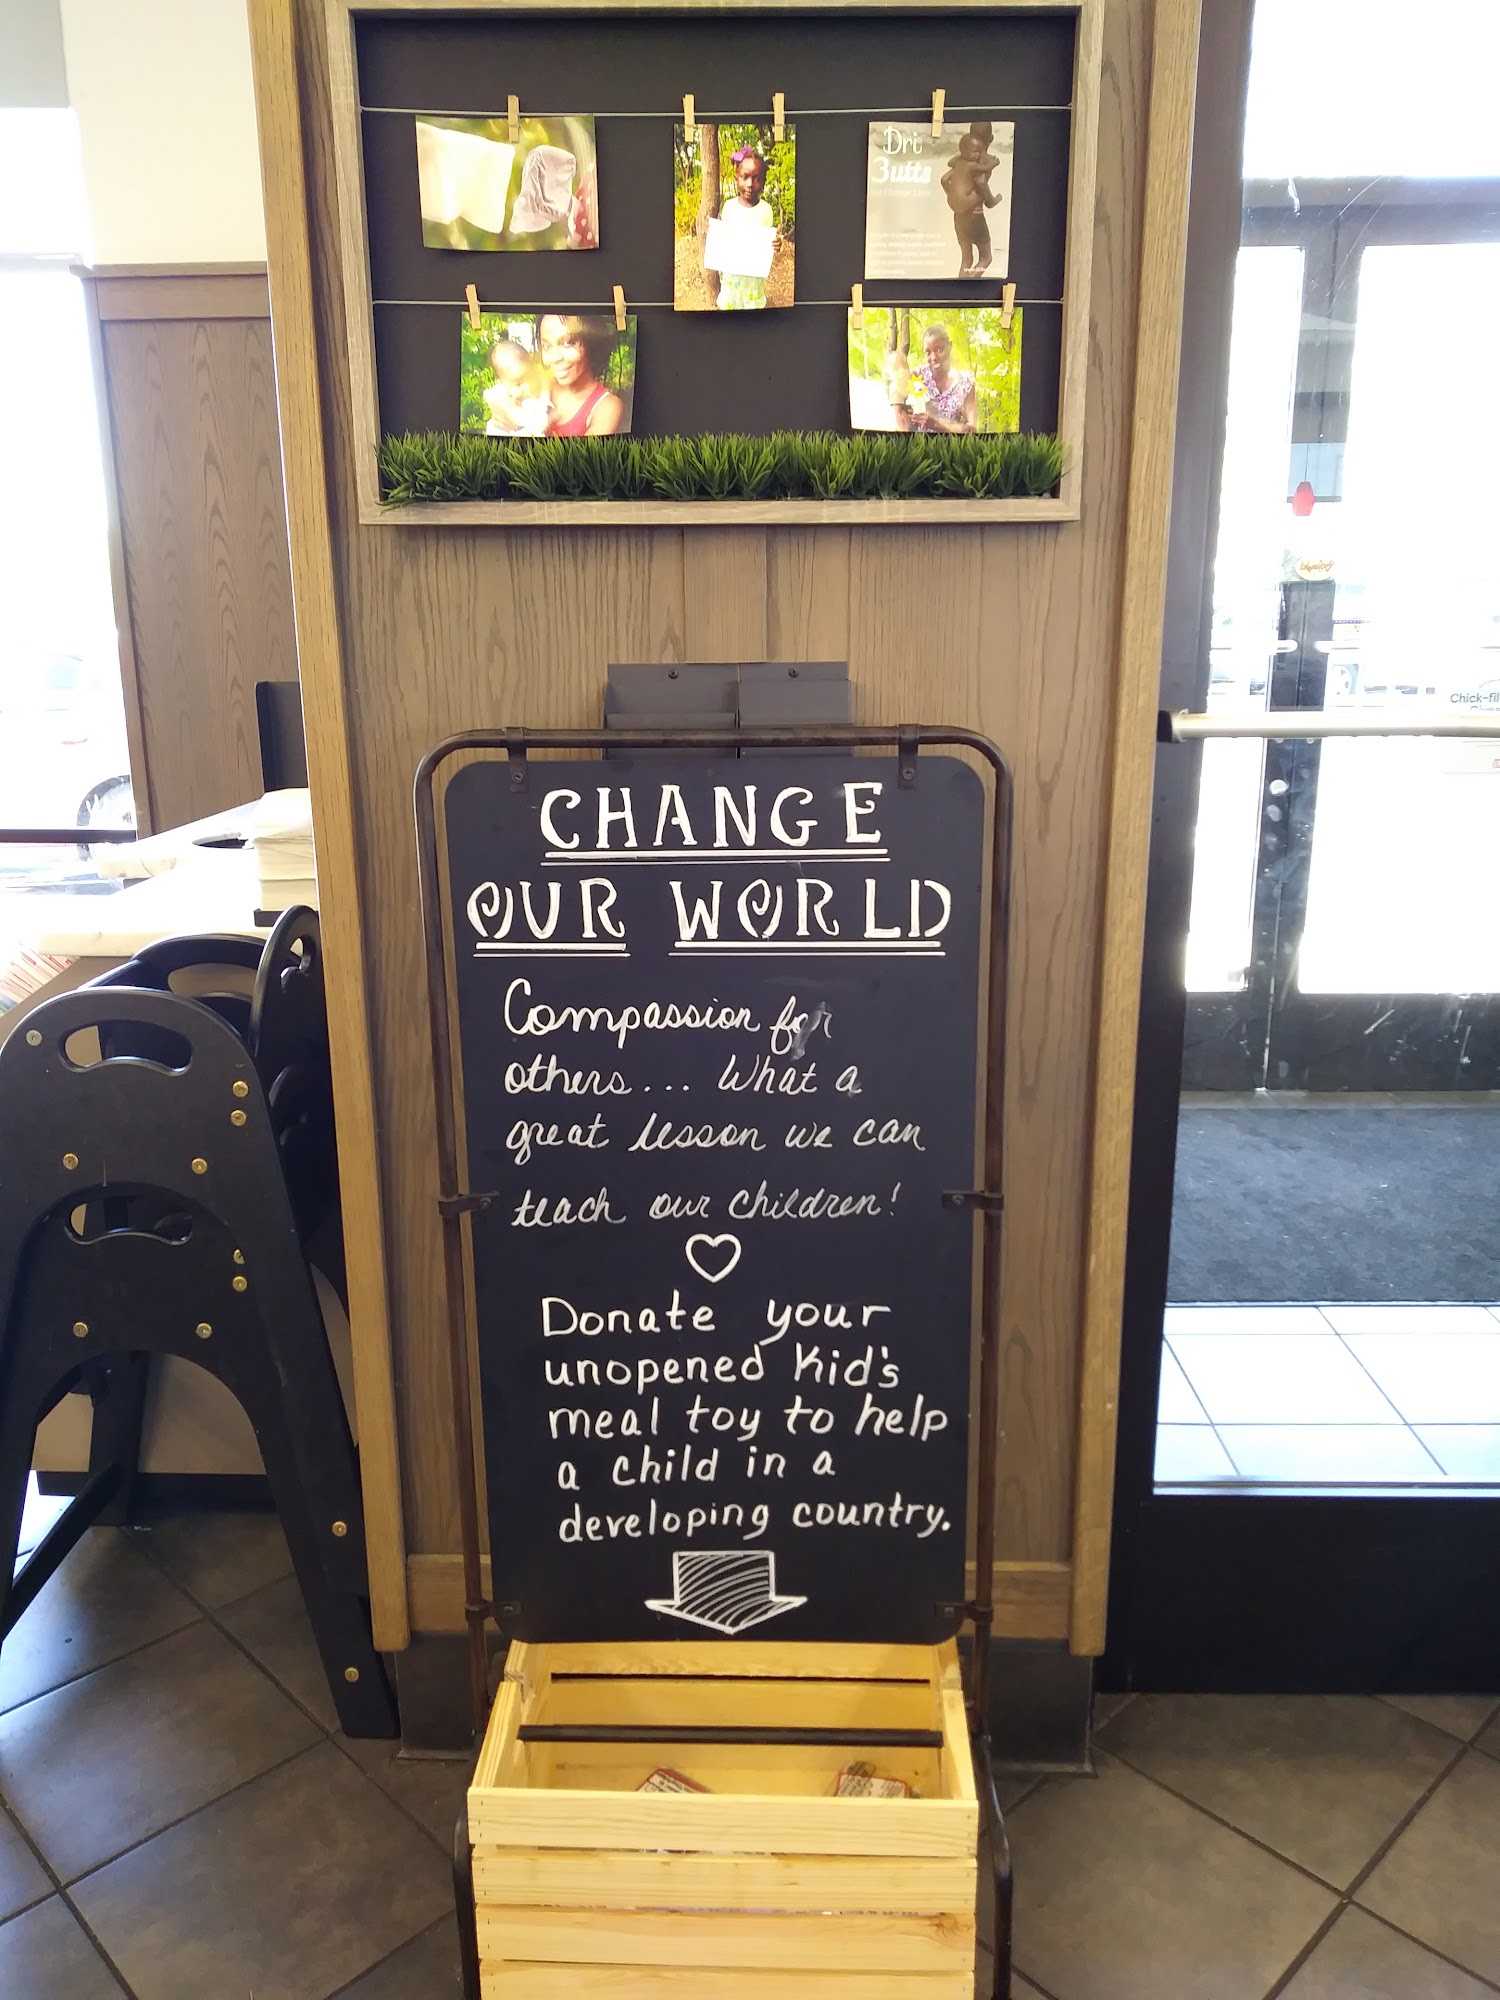 Dri
Butts
CHANGE
OUR WORLD
Compassion for
others... What a
great lesson we can
teach our children!
Donate your
unopened Kid's
meal toy to help
a child in a
developing country.
Chick-fil